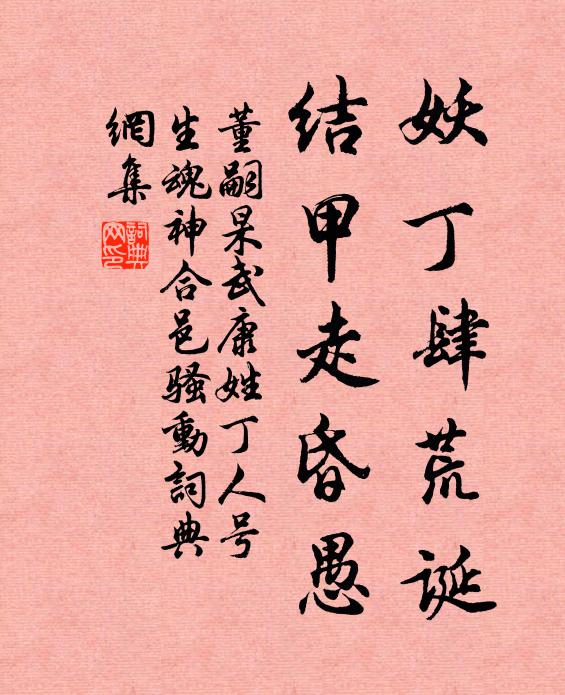 妖丁肆荒诞
结甲走昏愚
董嗣杲武康姓丁人号
生魂神合邑骚動詞典
網集
詞典網印